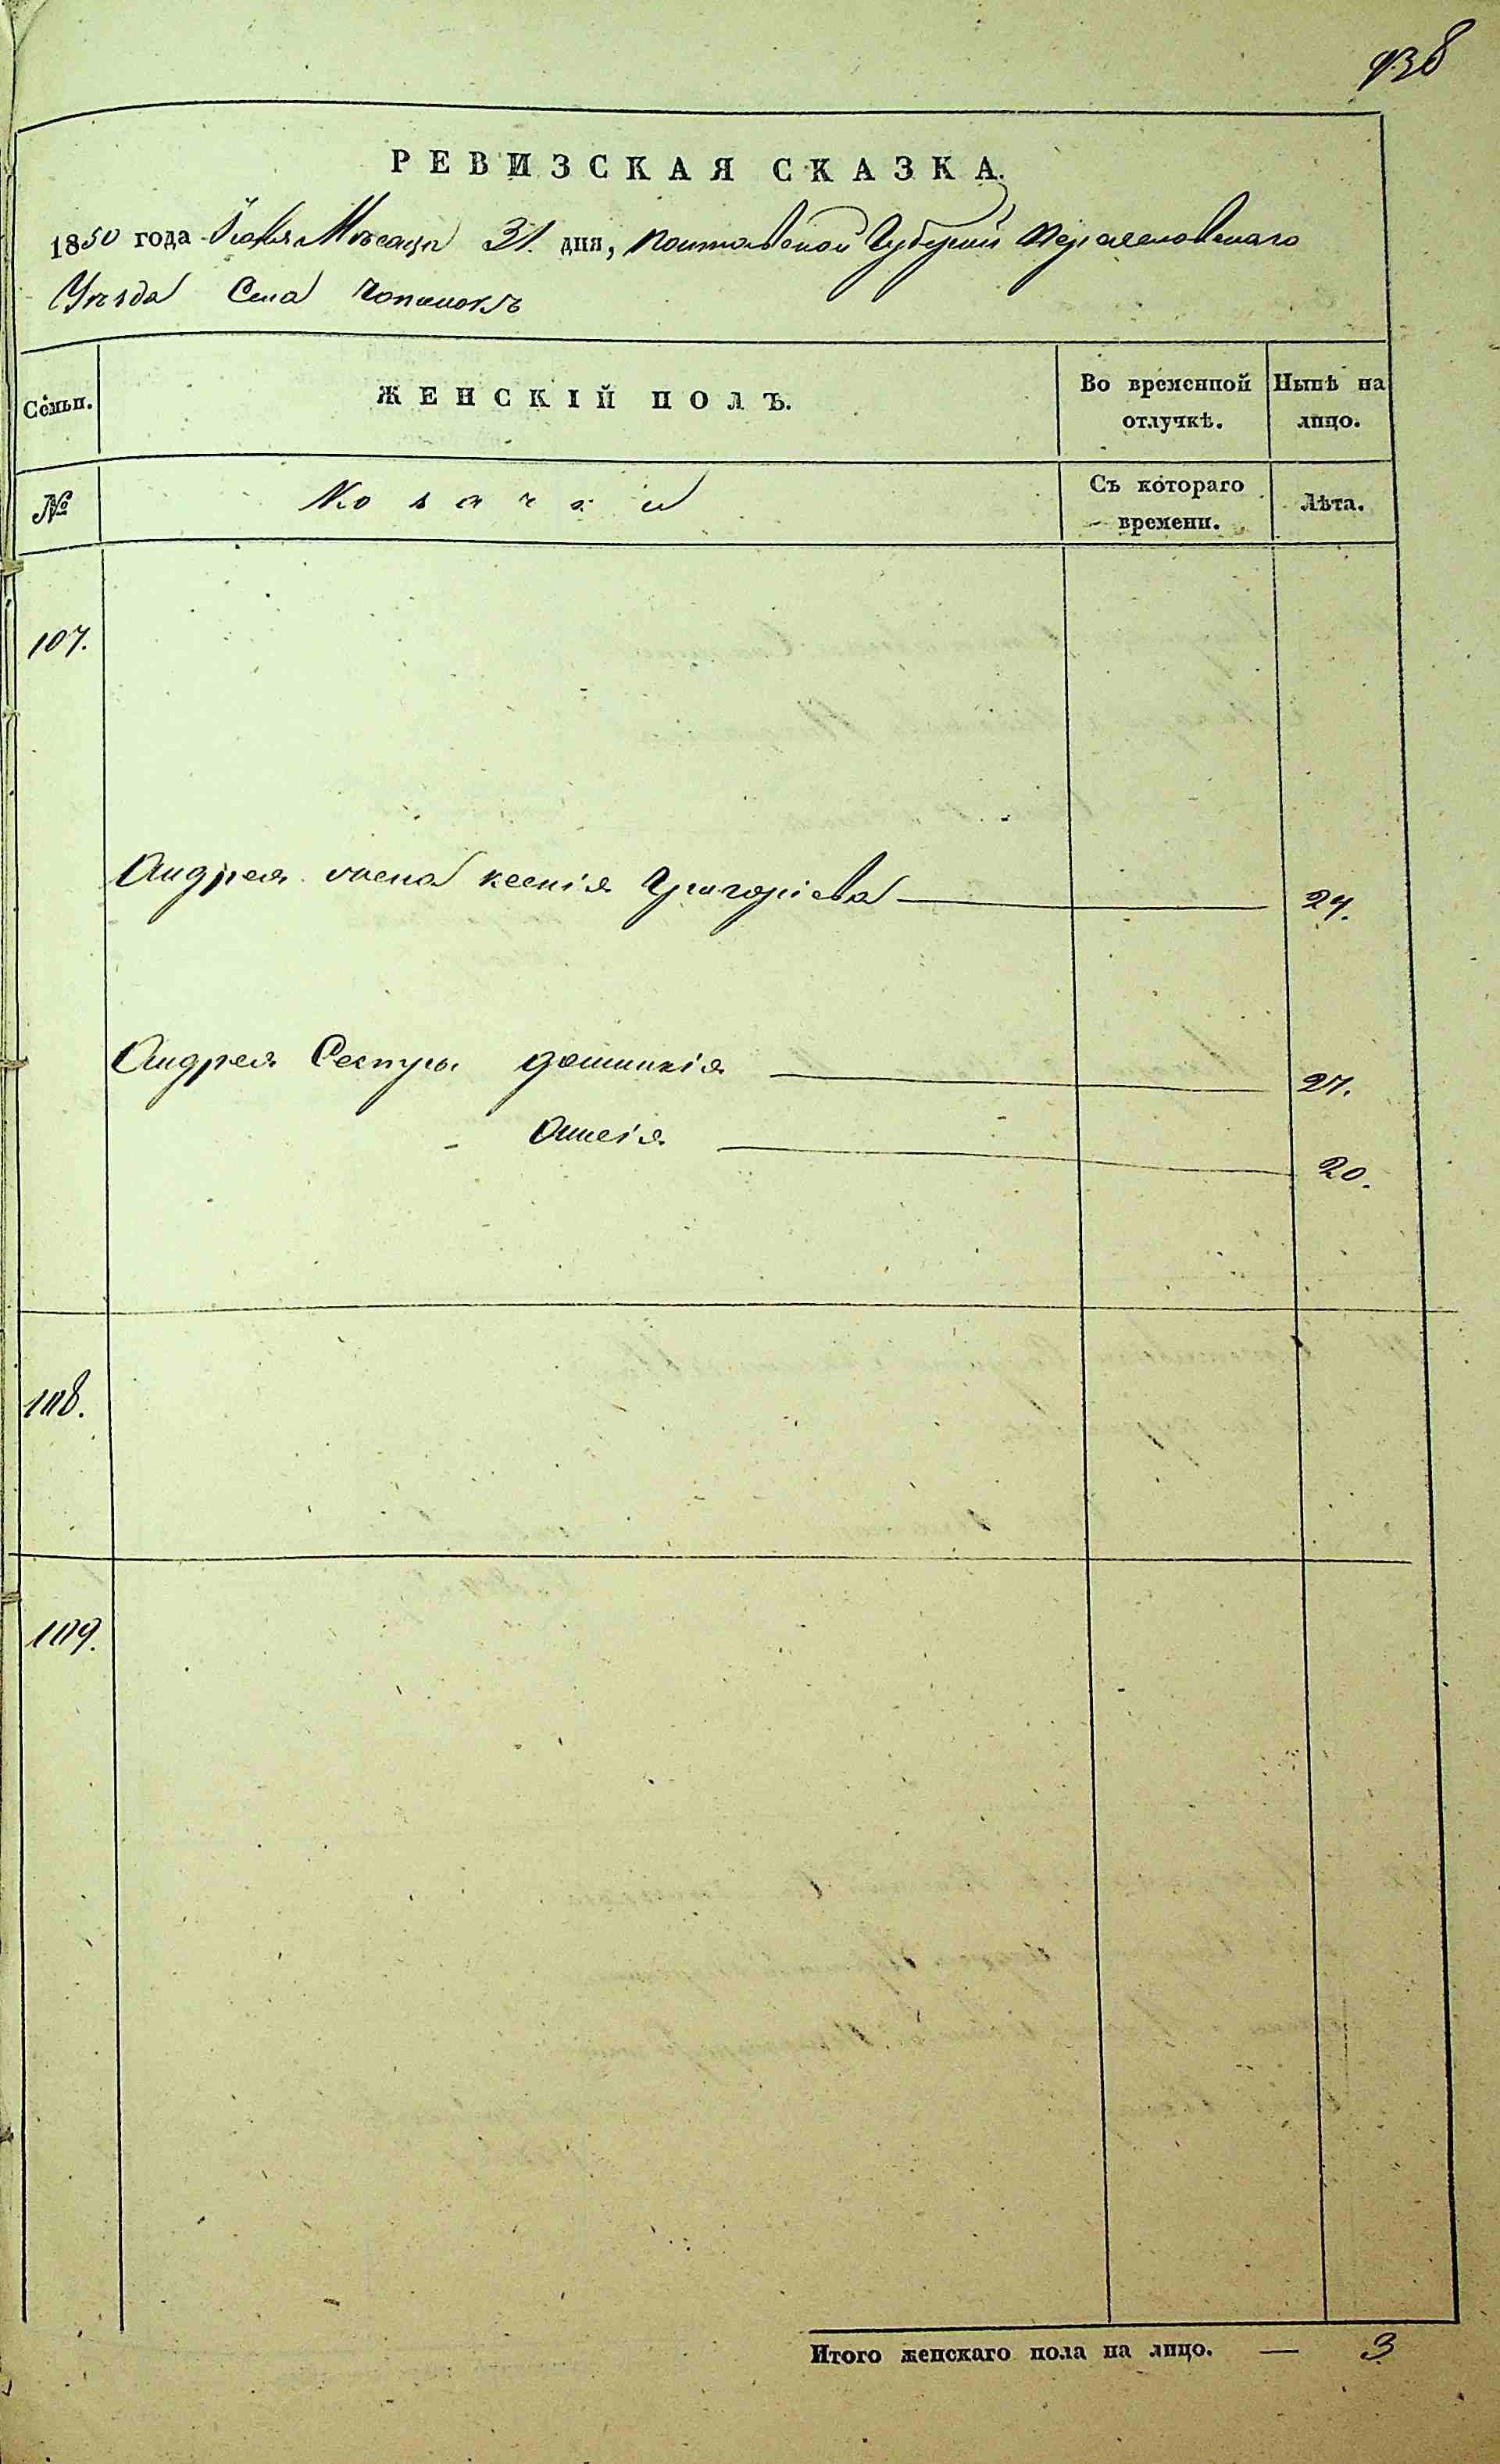 938
РЕВИЗСКАЯ СКАЗКА.
1850 года Іюля Мѣсяца 31 дня, Полтавской Губерніи Переяславскаго
Уѣзда Села Чопилокъ
Семьи. ЖЕНСКІЙ ПОЛЪ. Во временной отлучкѣ. Нынѣ на лицо.
№ Козачки Съ котораго времени. Лѣта.
107.
Андрея жена Ксенія Григоріева 24.
Андрея Сестры Домникія 27.
Анисія 20.
108.
109.
Итого женскаго пола на лицо. — 3